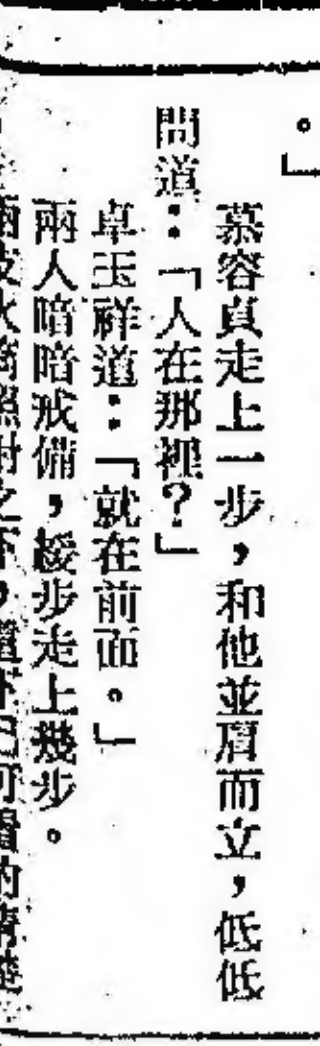 。」
慕容貞走上一步，和他並肩而立，低低
問道：「人在那裡？」
卓玉祥道：「就在前面。」
兩人暗暗戒備，緩步走上幾步。